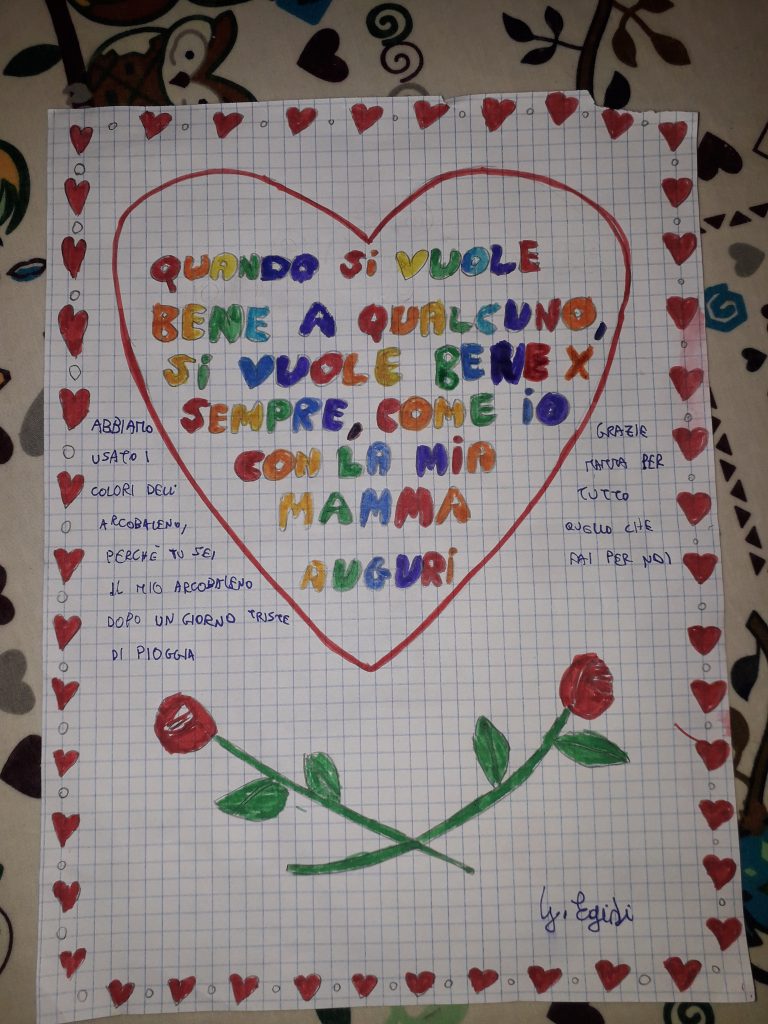 QUANDO Si VUOLE
BENE A QUALCUNO,
Si VUOLE BENE X
SEMPRE, COME iO
CON LA MiA
MAMMA
AUGURi
ABBIAMO
USATO I
COLORI DELL'
ARCOBALENO,
PERCHÈ TU SEI
IL MIO ARCOBALENO
DOPO UN GIORNO TRISTE
DI PIOGGIA
GRAZIE
MAMMA PER
TUTTO
QUELLO CHE
FAI PER NOI
Y. Egidi